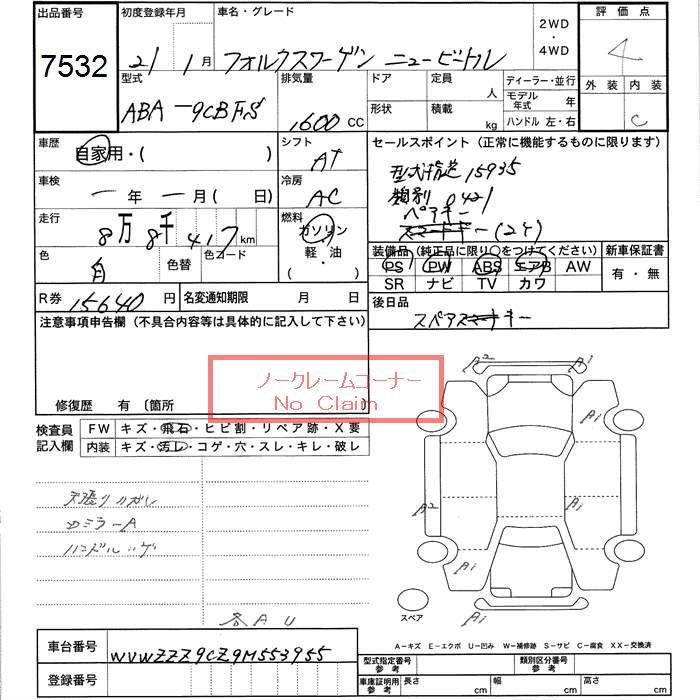 出品番号
7532
初度登録年月
21 1月
車名・グレード
フォルクスワーゲン ニュービートル
2WD
・
4WD
評価点
4
型式
ABA-9CBFS
排気量
1,600 CC
ドア
定員
人
形状
積載
kg
ディーラー・並行
モデル年式 年
ハンドル 左・右
外装 内装
C
車歴
自家用・( )
シフト
AT
セールスポイント (正常に機能するものに限ります)
型式指定 15935
類別 0421
ペアキー
スマートキー(2ケ)
車検
一年一月( 日)
冷房
AC
走行
8万8千417km
燃料
ガソリン
軽・油
( ・ )
色
白
色替
色コード
装備品 (純正品に限り〇をつけてください)
PS PW ABS エアB AW
SR ナビ TV カワ
新車保証書
有・無
R券 15640円
名変通知期限 月 日
後日品
スペアスマートキー
注意事項申告欄 (不具合内容等は具体的に記入して下さい)
ノークレームコーナー
No Claim
修復歴 有 〔箇所 〕
検査員記入欄
FW キズ・飛石・ヒビ割・リペア跡・X要
内装 キズ・汚レ・コゲ・穴・スレ・キレ・破レ
天張りハガレ
Dミラー A
ハンドルハゲ
各AU
A2 A1
A1
A2 A1
A1 A1
A1
スペア
A-キズ E-エクボ U-凹み W-補修跡 S-サビ C-腐食 XX-交換済
車台番号
WVWZZZ9CZ9M553955
登録番号
型式指定番号
参考
類別区分番号
参考
車庫証明用
参考
長さ cm 幅 cm 高さ cm